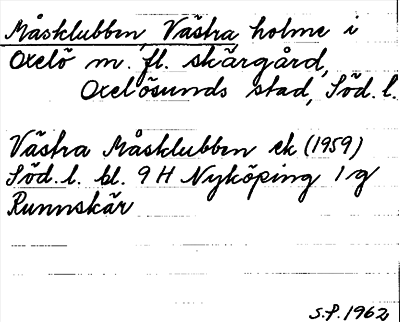 Måsklubben, Västra holme i
Oxelö m. fl. skärgård,
Oxelösunds stad, Söd. l.
Västra Måsklubben ek (1959)
Söd. l. bl. 9 H Nyköping 1 g
Runnskär
S.P. 1962